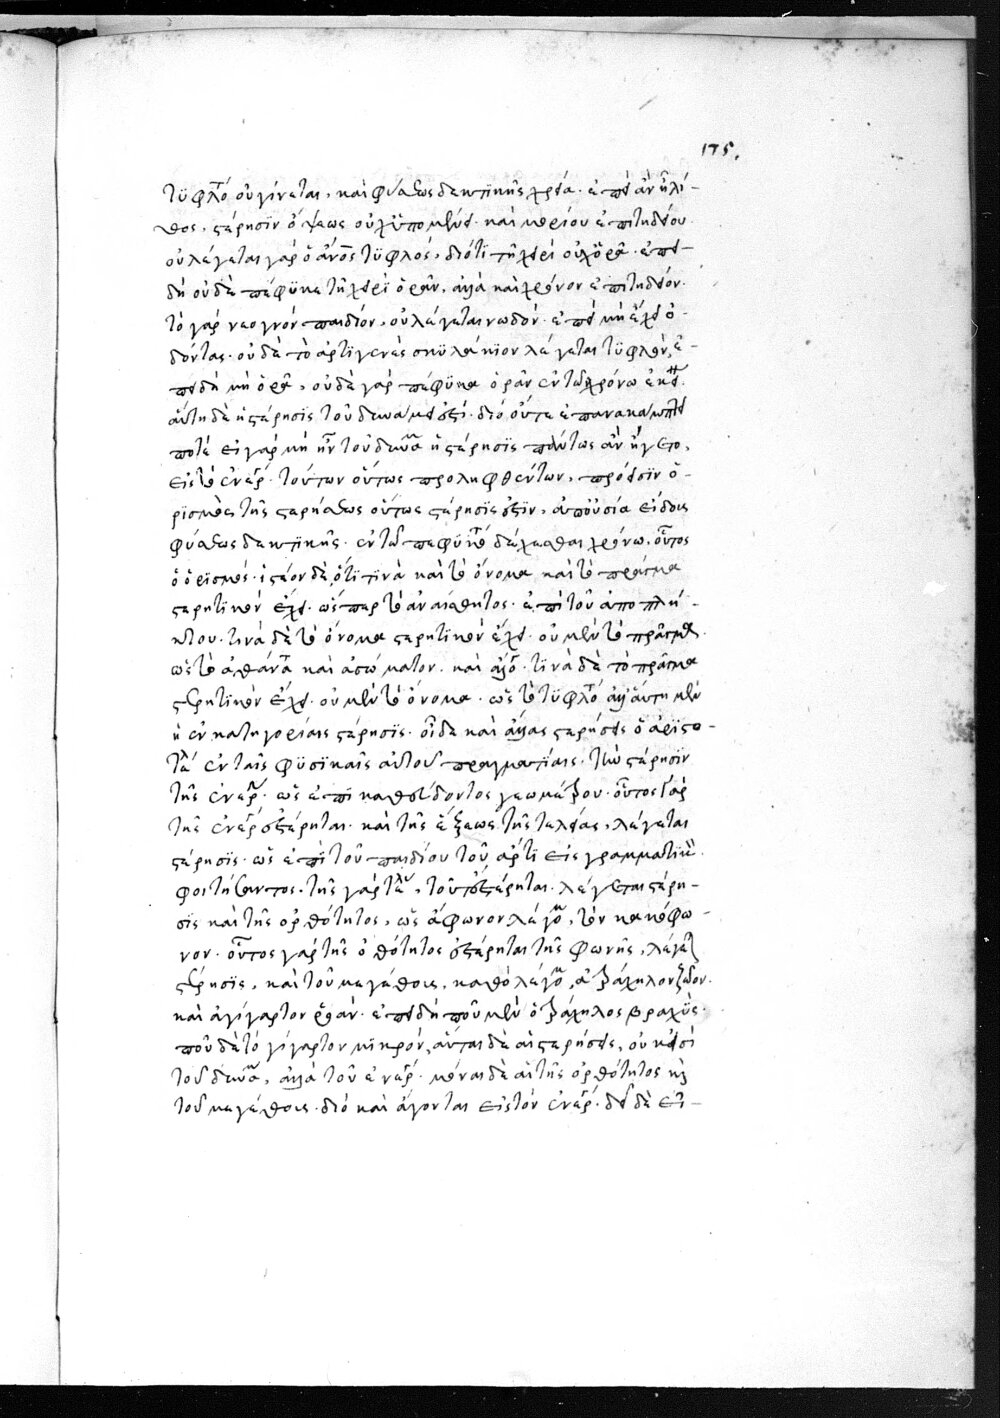 175.
τυφλὸ οὐ γίνεται, καὶ φύσεως δεκτικῆς χρεία. ἐπεὶ ἂν ἢ λί-
θος, στέρησιν ὄψεως οὐχ ὑπομένει. καὶ μορίου ἐπιτηδείου.
οὐ λέγεται γὰρ ὁ ἄνος τυφλός, διότι τῇ χειρὶ οὐχ ὁρᾷ. ἐπει-
δὴ οὐδὲ πέφυκε τῇ χειρὶ ὁρᾶν, ἀλλὰ καὶ χρόνον ἐπιτηδείον.
τὸ γὰρ νεογνὸν παιδίον, οὐ λέγεται νωδόν. ἐπεὶ μὴ ἔχει ὀ-
δόντας. οὐδὲ τὸ ἀρτιγενὲς σκυλάκιον λέγεται τυφλόν, ἐ-
πειδὴ μὴ ὁρᾷ, οὐδὲ γὰρ πέφυκε ὁρᾶν ἐν τῷ χρόνω ἐκεί.
αὕτη δὲ ἡ στέρησις τοῦ δυνάμει ἐστί. διὸ οὔτε ἐπανακάμπτει
ποτέ εἰ γὰρ μὴ ἦν τοῦ δυνα ἡ στέρησις πάντως ἂν ἤγετο,
εἰς τὸ ἐνερ. τούτων οὕτως προληφθέντων, πρόεισιν ὁ
ὁρισμὸς τῆς στερήσεως οὕτως στέρησις ἐστὶν, ἀπουσία εἴδους
φύσεως δεκτικῆς. ἐν τῷ πεφυκό δέχεσθαι χρόνω. οὗτος
ὁ ὁρισμός. ἰστέον δὲ, ὅτι τινὰ καὶ τὸ ὄνομα καὶ τὸ πρᾶγμα
στερητικὸν ἔχει. ὥσπερ τὸ ἀναίσθητος. ἐπὶ τοῦ ἀποπλή-
κτου. τινὰ δὲ τὸ ὄνομα στερητικὸν ἔχει. οὐ μὲν τὸ πρᾶγμα.
ὡς τὸ ἀθάνα καὶ ἀσώματον. καὶ ἀλο. τινὰ δὲ τὸ πρᾶγμα
στερητικὸν ἔχει. οὐ μὲν τὸ ὄνομα. ὡς τὸ τυφλὸ ἀλλ' αὕτη μὲν
ἡ ἐν κατηγορίαις στέρησις. οἶδε καὶ ἄλλας στερήσεις ὁ ἀριστο-
τλε ἐν ταῖς φυσικαῖς αὐτοῦ πραγματείαις. τὴν στέρησιν
τῆς ἐνερ. ὡς ἐπὶ καθεύδοντος γεωμέτρου. οὗτος γὰρ
τῆς ἐνερ ἐστέρηται. καὶ τῆς ἕξεως τῆς τελείας, λέγεται
στέρησις. ὡς ἐπὶ τοῦ παιδίου τοῦ ἄρτι εἰς γραμματικ.
φοιτήσαντος. τῆς γὰρ τελ, τοῦτο ἐστέρηται. λέγεται στέρη-
σις καὶ τῆς ὀρθότητος, ὡς ἄφωνον λέγο, τὸν κακόφω-
νον. οὗτος γὰρ τῆς ὀθότητος ἐστέρηται τῆς φωνῆς, λέγετ
στέρησις, καὶ τοῦ μεγέθους, καθὸ λέγο, ἀτράχηλον
καὶ ἀγίγαρτον ῥοάν. ἐπειδὴ ποῦ μὲν ὁ τράχηλος βραχύς.
ποῦ δὲ τὸ γίγαρτον μικρόν, αὗται δὲ αἱ στερήσεις, οὐκ εἰσὶ
τοῦ δυνα, ἀλλὰ τοῦ ἐνερ. μόναι δὲ αἱ τῆς ὀρθότητος κὶ
τοῦ μεγέθους. διὸ καὶ ἄγονται εἰς τὸν ἐνερ. δεῖ δὲ εἰ-